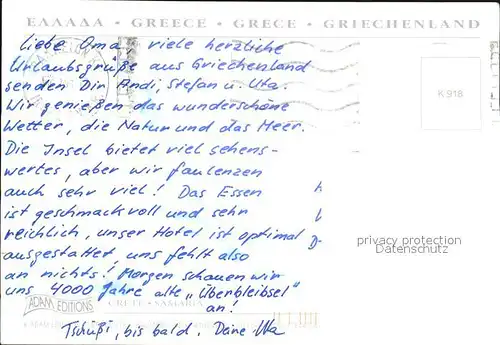 ΕΛΛΑΔΑ • GREECE • GRECE • GRIECHENLAND
Liebe Oma, viele herzliche
Urlaubsgrüße aus Griechenland
senden Dir Andi, Stefan u. Uta.
Wir genießen das wunderschöne
Wetter, die Natur und das Meer.
Die Insel bietet viel sehens-
wertes, aber wir faulenzen
auch sehr viel! Das Essen
ist geschmackvoll und sehr
reichlich, unser Hotel ist optimal
ausgestattet, uns fehlt also
an nichts! Morgen schauen wir
uns 4000 Jahre alte „Überbleibsel"
an!
Tschüßi, bis bald. Deine Uta
K 918
privacy protection
Datenschutz
ADAM EDITIONS
CRETE - SAMARIA